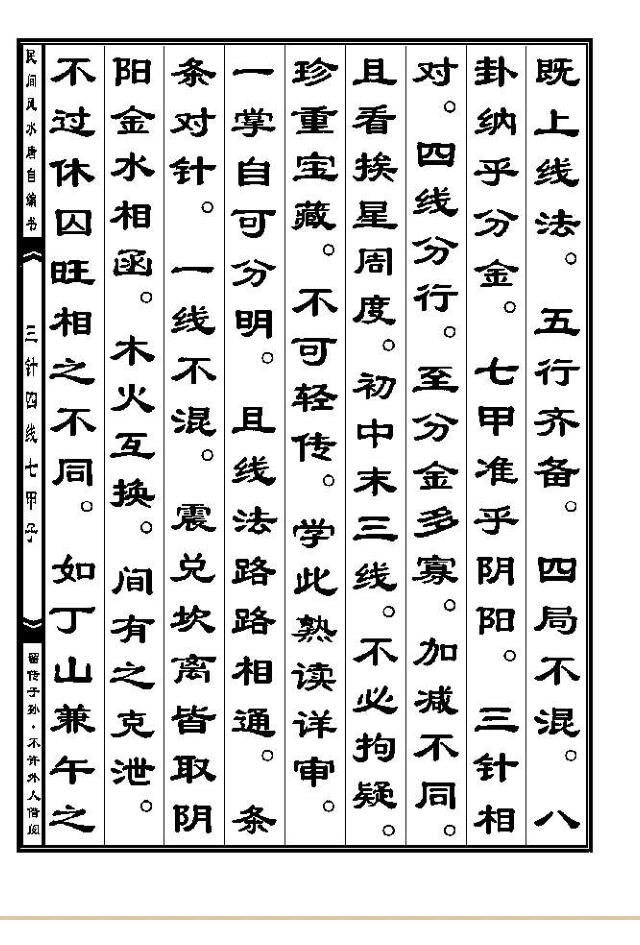 既上线法。五行齐备。四局不混。八
卦纳乎分金。七甲准乎阴阳。三针相
对。四线分行。至分金多寡。加减不同。
且看挨星周度。初中末三线。不必拘疑。
珍重宝藏。不可轻传。学此熟读详审。
一掌自可分明。且线法路路相通。条
条对针。一线不混。震兑坎离皆取阴
阳金水相函。木火互换。间有之克泄。
不过休囚旺相之不同。如丁山兼午之
民间风水唐自编书
三针四线七甲子
留传子孙·不许外人借阅